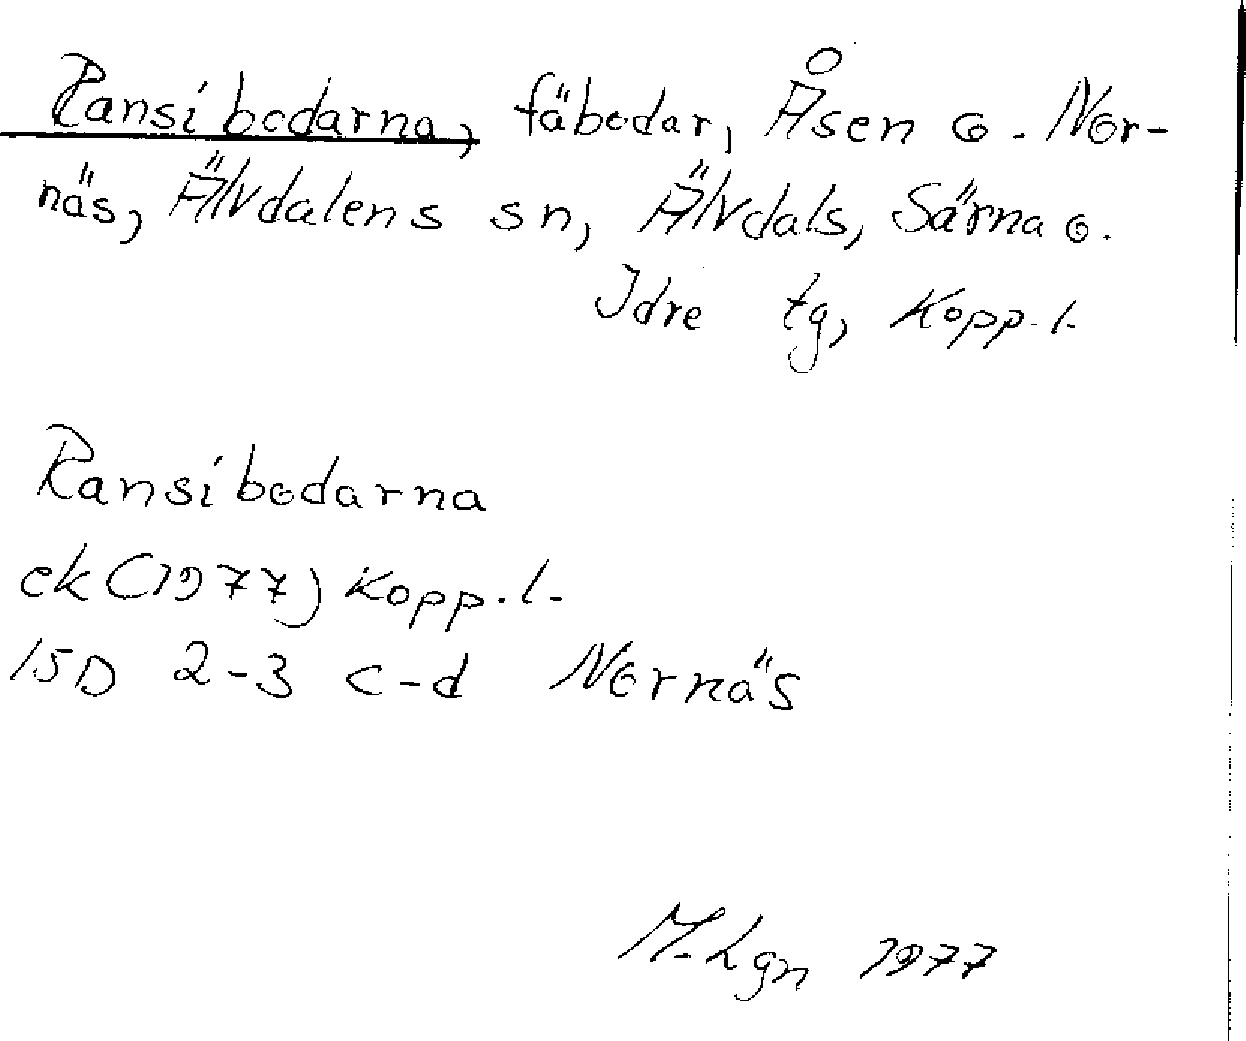 Ransibodarna, fäbodar, Åsen o. Nor-
näs, Älvdalens sn, Älvdals, Särna o.
Idre tg, Kopp. l.
Ransibodarna
ek (1977) Kopp. l.
15D 2-3 c-d Nornäs
M. Lgn 1977